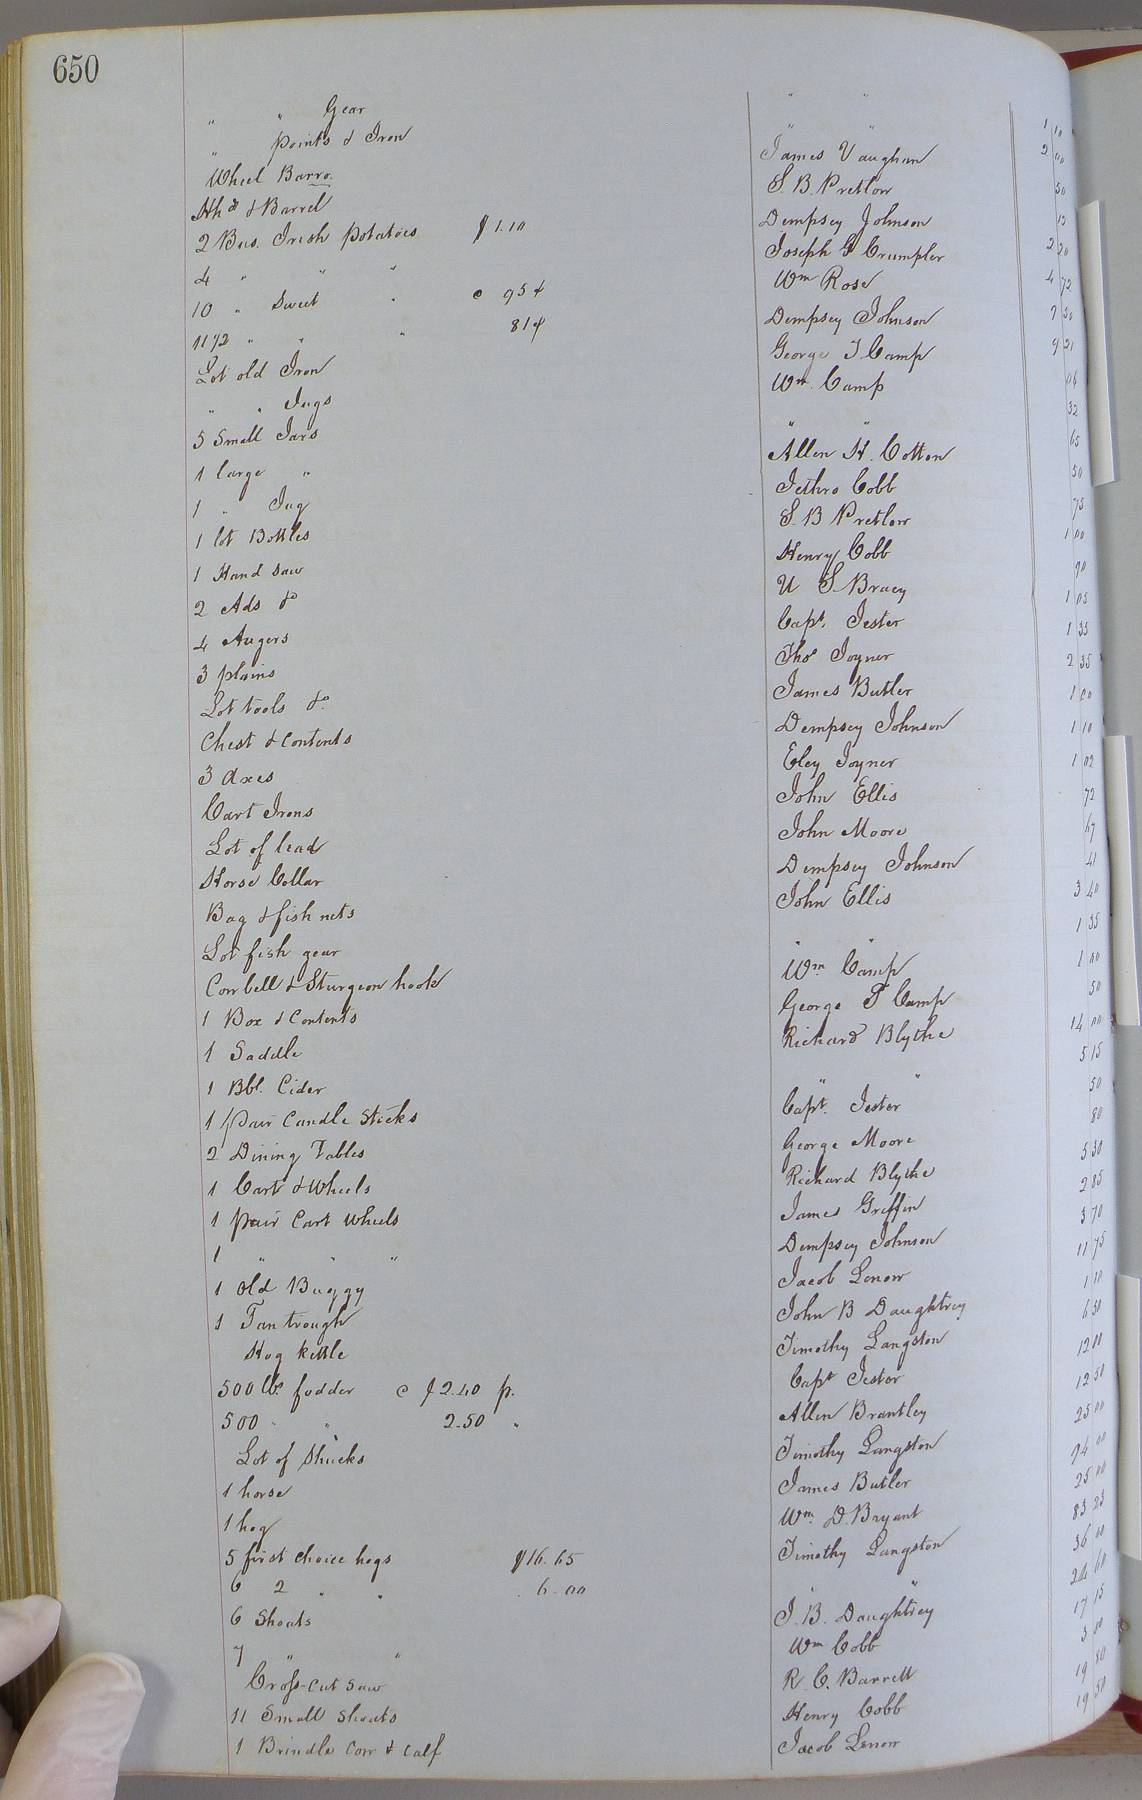 650
" " Gear " "
" points & Iron " " 1 10
Wheel Barro. James Vaughan 2 00
Hhd & Barrel S. B. Pretlow 50
2 Bus. Irish potatoes $1.10 Dempsey Johnson 12
4 " " " Joseph G Crumpler 2 20
10 " Sweet " @ 95¢ Wm Rose 4 72
11 1/2 " " " 81¢ Dempsey Johnson 9 50
Lot old Iron George T. Camp 9 21
" " Jugs Wm. Camp 04
5 Small Jars " " 32
1 large " Allen H. Cotton 65
1 " Jug Jethro Cobb 50
1 lot Bottles S. B Pretlow 75
1 Hand Saw Henry Cobb 1 00
2 Ads &c U S. Bracy 90
4 Augers Capt. Jester 1 05
3 plains Thos Joyner 1 35
Lot tools &c. James Butler 2 35
Chest & Contents Dempsey Johnson 1 00
3 Axes Eley Joyner 1 10
Cart Irons John Ellis 1 02
Lot of lead John Moore 72
Horse Collar Dempsey Johnson 67
Bag & fish nets John Ellis 41
Lot fish gear " " 3 40
Cow bell & Sturgeon hook Wm Camp 1 35
1 Box & Contents George T Camp 1 00
1 Saddle Richard Blythe 50
1 Bbl. Cider " " 14 00
1 pair Candle Sticks Capt. Jester 5 15
2 Dining Tables George Moore 50
1 Cart & Wheels Richard Blythe 80
1 pair Cart Wheels James Griffin 5 30
1 " " " Dempsey Johnson 2 85
1 Old Buggy Jacob Lenow 3 70
1 Tan trough John B Daughtrey 11 75
Hog kettle Timothy Langston 1 10
500 lbs. fodder @ $2.40 p. Capt Jester 6 50
500 " " 2.50 " Allen Brantley 12 00
Lot of Shucks Timothy Langston 12 50
1 horse James Butler 25 00
1 hog Wm. D. Bryant 94 00
5 first Choice hogs $16.65 Timothy Langston 25 00
6 2 " " 6.00 " " 83 25
6 Shoats J. B. Daughtrey 36 00
7 " " Wm Cobb 24 60
Cross-Cut Saw R. C. Barrett 17 15
11 Small Shoats Henry Cobb 3 50
1 Brindle Cow & Calf Jacob Lenow 19 80
19 50